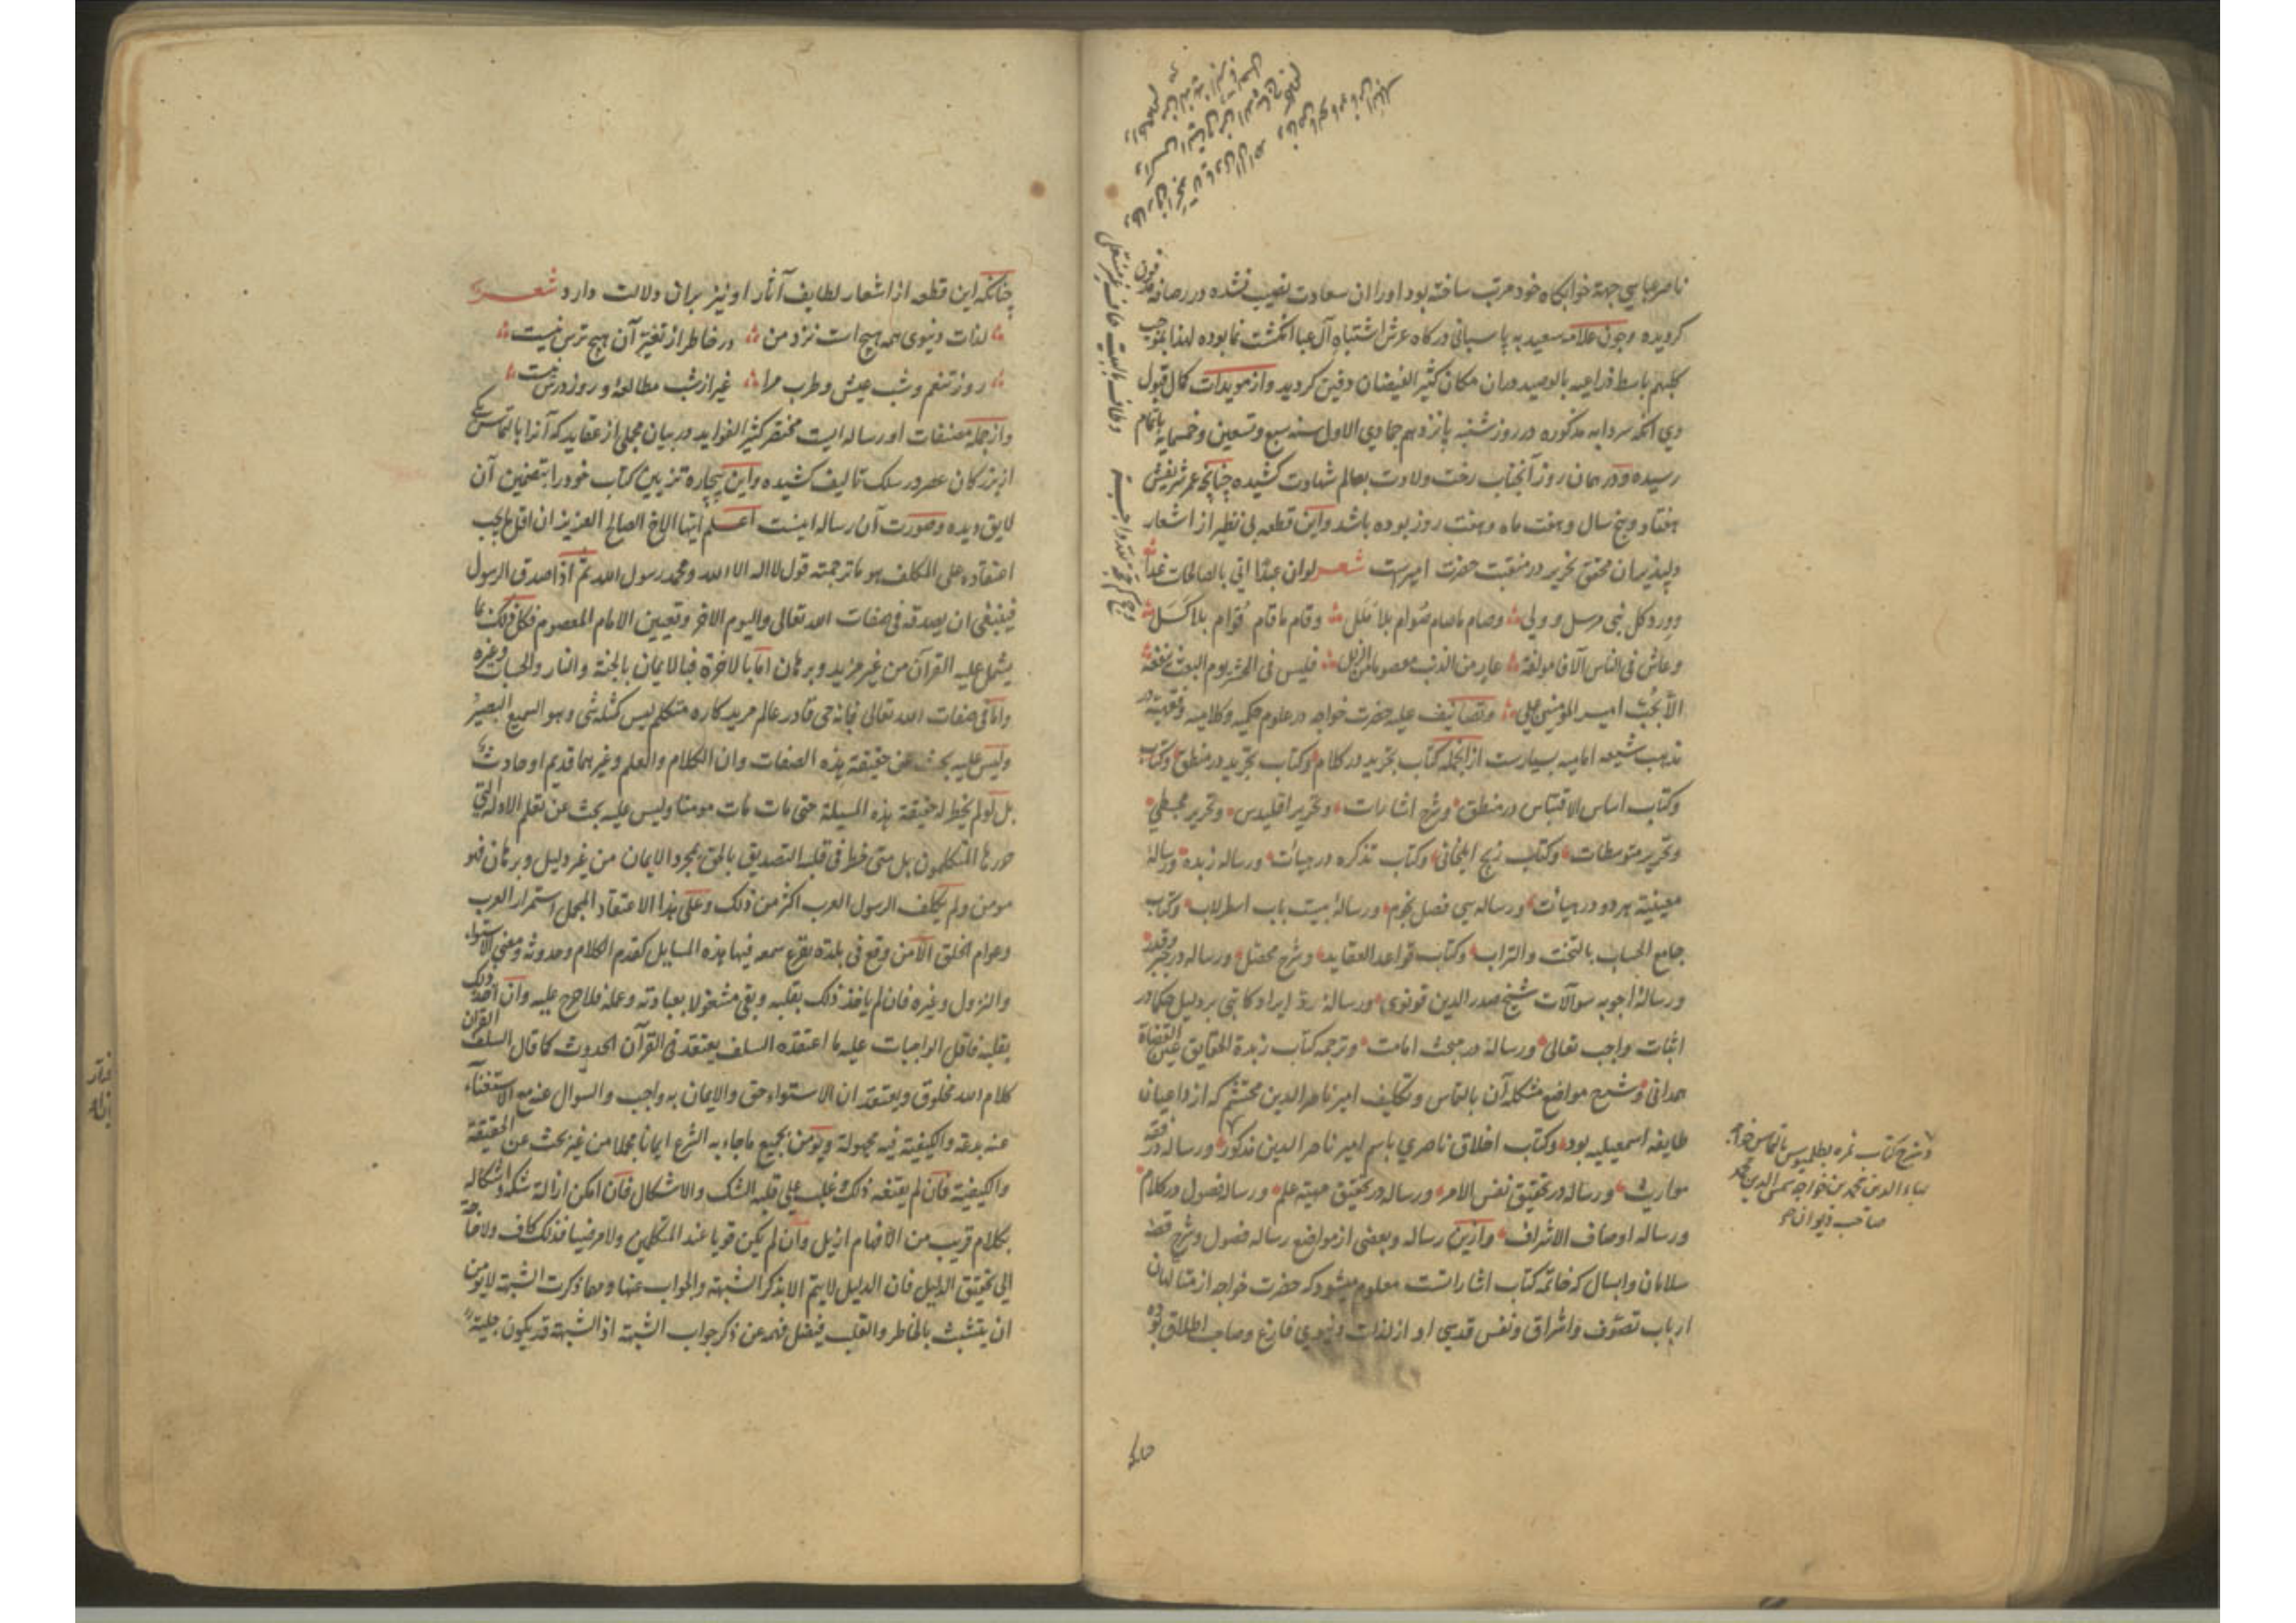 ناصر عباسی جهة خوابگاه خود مرتب ساخته بود اورا ان سعادت نصیب نشده در رصافه مدفون
کردیده و چون علامه سعید به پاسبانی درکاه عرش اشتباه آل عبا انکشت نما بوده لهذا بموجب
کلبهم باسط ذراعیه بالوصید دران مکان کثیر الفیضان دفین کردید و از مویدات کمال قبول
وی انکه سردابه مذکوره در روز شنبه پانزدهم جمادی الاول سنه سبع و تسعین و خمسمایة باتمام
رسیده و در همان روز آنجناب رخت ولادت بعالم شهادت کشیده چنانچه عمر شریفش
هفتاد و پنج سال و هفت ماه و هفت روز بوده باشد و این قطعه بی نظیر از اشعار
دلپذیر ان محقق نحریر در منقبت حضرت امیرست شعر لو ان عبدًا اتی بالصالحات غداً
وود کل نبی مرسل و ولی وصام ماصام صوام بلا ملل وقام ماقام قوام بلا کسل
وعاش فی الناس آلافا مولفة عار من الذنب معصوما من الزلل فلیس فی الحشر یوم البعث ینفعه
الا بحب امیر المؤمنین علی و تصانیف علیه حضرت خواجه در علوم حکمیه و کلامیه و فقهیه در
مذهب شیعه امامیه بسیارست از انجمله کتاب تجرید در کلام و کتاب تجرید در منطق و کتاب
و کتاب اساس الاقتباس در منطق و شرح اشارات و تحریر اقلیدس و تحریر مجسطی
و تحریر متوسطات و کتاب زیج ایلخانی و کتاب تذکره در هیأت و رساله زبده و رسالهٔ
معینیه هر دو در هیأت و رساله سی فصل نجوم و رسالهٔ بیست باب اسطرلاب و کتاب
جامع الحساب بالتخت والتراب و کتاب قواعد العقاید و شرح محصل و رساله در جبر و قدر
و رسالهٔ اجوبه سوآلات شیخ صدر الدین قونوی و رسالهٔ رد ایراد کاتبی بر دلیل حکما در
اثبات واجب تعالی و رسالهٔ در مبحث امامت و ترجمه کتاب زبدة الحقایق عین القضاة
همدانی و شرح مواضع مشکله آن بالتماس و تکلیف امیر ناصر الدین محتشم که از داعیان
طایفه اسمعیلیه بود و کتاب اخلاق ناصری باسم امیر ناصر الدین مذکور و رساله در فقه
مواریث و رساله در تحقیق نفس الامر و رساله در تحقیق مهیة علم و رساله فصول در کلام
و رساله اوصاف الاشراف و ازین رساله و بعضی از مواضع رساله فصول و شرح قصه
سلامان و ابسال که خاتمه کتاب اشاراتست معلوم میشود که حضرت خواجه از متالهان
ارباب تصوف و اشراق و نفس قدسی او از لذات دنیوی فارغ و صاحب اطلاق بوده
و شرح کتاب ثمره بطلمیوس بالتماس خواجه
بهاء الدین محمد بن خواجه شمس الدین محمد
صاحب دیوان
وطاف بالبیت طاف غیر منتعل
وحج کم حجة لله واجبة
چنانکه این قطعه از اشعار لطایف آثار او نیز بران دلالت دارد شعر
لذات دنیوی همه هیچ است نزد من در خاطر از تغیر آن هیچ ترس نیست
روز تنعم و شب عیش و طرب مرا غیر از شب مطالعه و روز درس نیست
و از جمله مصنفات او رساله ایست مختصر کثیر الفواید در بیان مجملی از عقاید که آنرا بالتماس یکی
از بزرکان عصر در سلک تالیف کشیده و این بیچاره تزیین کتاب خود را بتضمین آن
لایق دیده و صورت آن رساله اینست اعلم ایها الاخ الصالح العزیز ان اقل ما یجب
اعتقاده علی المکلف هو ما ترجمته قول لا اله الا الله و محمد رسول الله ثم اذا صدق الرسول
فینبغی ان یصدقه فی صفات الله تعالی والیوم الاخر وتعیین الامام المعصوم فکل ذلک بما
یشمل علیه القرآن من غیر مزید وبرهان اما بالاخرة فبالایمان بالجنة والنار والحساب وغیره
واما فی صفات الله تعالی فبانه حی قادر عالم مرید کاره متکلم لیس کمثله شی وهو السمیع البصیر
ولیس علیه بحث عن حقیقة هذه الصفات وان الکلام والعلم وغیرهما قدیم او حادث
بل لو لم یخطر له حقیقة هذه المسیلة حتی مات مات مومنا ولیس علیه بحث عن تعلم الادلة التی
حررها المتکلمون بل متی خطر فی قلبه التصدیق بالحق بمجرد الایمان من غیر دلیل وبرهان فهو
مومن ولم یکلف الرسول العرب اکثر من ذلک وعلی هذا الاعتقاد المجمل استمرار العرب
وعوام الخلق الا من وقع فی بلدة یقرع سمعه فیها هذه المسایل کقدم الکلام وحدوثه ومعنی الاستواء
والنزول وغیره فان لم یاخذ ذلک بقلبه وبقی مشغولا بعبادته وعمله فلا حرج علیه وان اخذ ذلک
بقلبه فاقل الواجبات علیه ما اعتقده السلف یعتقد فی القرآن الحدوث کما قال السلف القران
کلام الله مخلوق ویعتقد ان الاستواء حق والایمان به واجب والسوال عنه مع الاستغناء
عنه بدعه والکیفیة فیه مجهولة ویومن بجمیع ما جاء به الشرع ایمانا مجملا من غیر بحث عن الحقیقة
والکیفیة فان لم یقنعه ذلک وغلب علی قلبه الشک والاشکال فان امکن ازالة شکه واشکاله
بکلام قریب من الافهام ازیل وان لم یکن قویا عند المتکلمین ولا مرضیا فذلک کاف ولا حاجة
الی تحقیق الدلیل فان الدلیل لا یتم الا بذکر الشبهة والجواب عنها ومهما ذکرت الشبهة لا یومن
ان یتشبث بالخاطر والقلب فیضل فهمه عن ذکر جواب الشبهة اذ الشبهة قد یکون جلیة